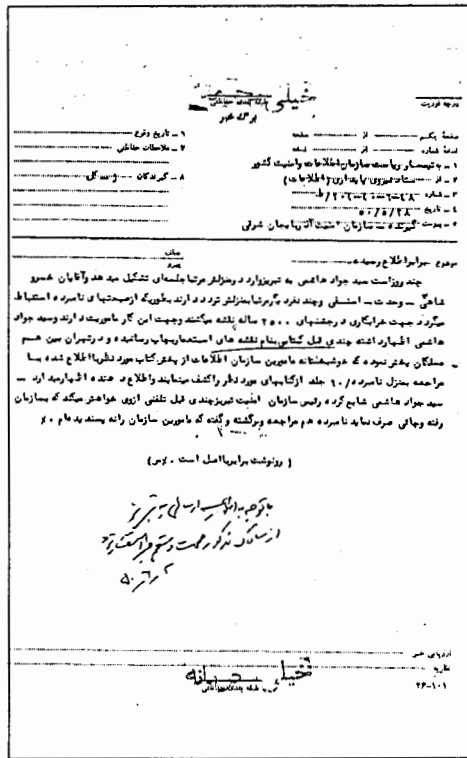 خیلی محرمانه
طبقه بندی حفاظتی
برگ خبر
درجه فوریت
صفحه یکم از صفحه
نسخه شماره از نسخه
۱ – به تیمسار ریاست سازمان اطلاعات و امنیت کشور
۲ – از ستاد نیروی پایداری (اطلاعات)
۳ – شماره
۴ – تاریخ ۵۰/۵/۲۸
۵ – پیوست گیرنده – سازمان امنیت آذربایجان شرقی
۶ – تاریخ وقوع
۷ – ملاحظات حفاظتی
۸ – گیرندگان
موضوع – برابر اطلاع رسیده
چند روز است سید جواد هاشمی به تبریز وارد و در منزلش مرتبا جلسه‌ای تشکیل میدهد و آقایان خسرو
شاهگلی – وحدت – اسنقی و چند نفر دیگر مرتبا بمنزلش تردد دارند بطوریکه از صحبتهای نامبرده استنباط
میگردد جهت خرابکاری در جشنهای ۲۵۰۰ ساله نقشه میکشند وجهت این کار ماموریت دارند وسید جواد
هاشمی اظهار داشته چندی قبل کتابی بنام نقشه های استعمار بچاپ رسانیده و در تهران بین هم
مسلکان پخش نموده که خوشبختانه مامورین سازمان اطلاعات از پخش کتاب مورد نظر با اطلاع شده با
مراجعه بمنزل نامبرده ۱۰٪ جلد از کتابهای مورد نظر را کشف مینمایند واطلاع دهنده اظهار میدارد –
سید جواد هاشمی شایع کرده رئیس سازمان امنیت تبریز چندی قبل تلفنی از وی خواهش میکند که بسازمان
رفته وچائی صرف نماید نامبرده هم مراجعه وبرگشته وگفته که مامورین سازمان را نه پسندیده ام ٪
( رونوشت برابر با اصل است . )
با توجه به
از ساواک مذکور
ارزیابی خبر
نظریه
۲۶-۱۰۱
خیلی محرمانه
طبقه بندی حفاظتی